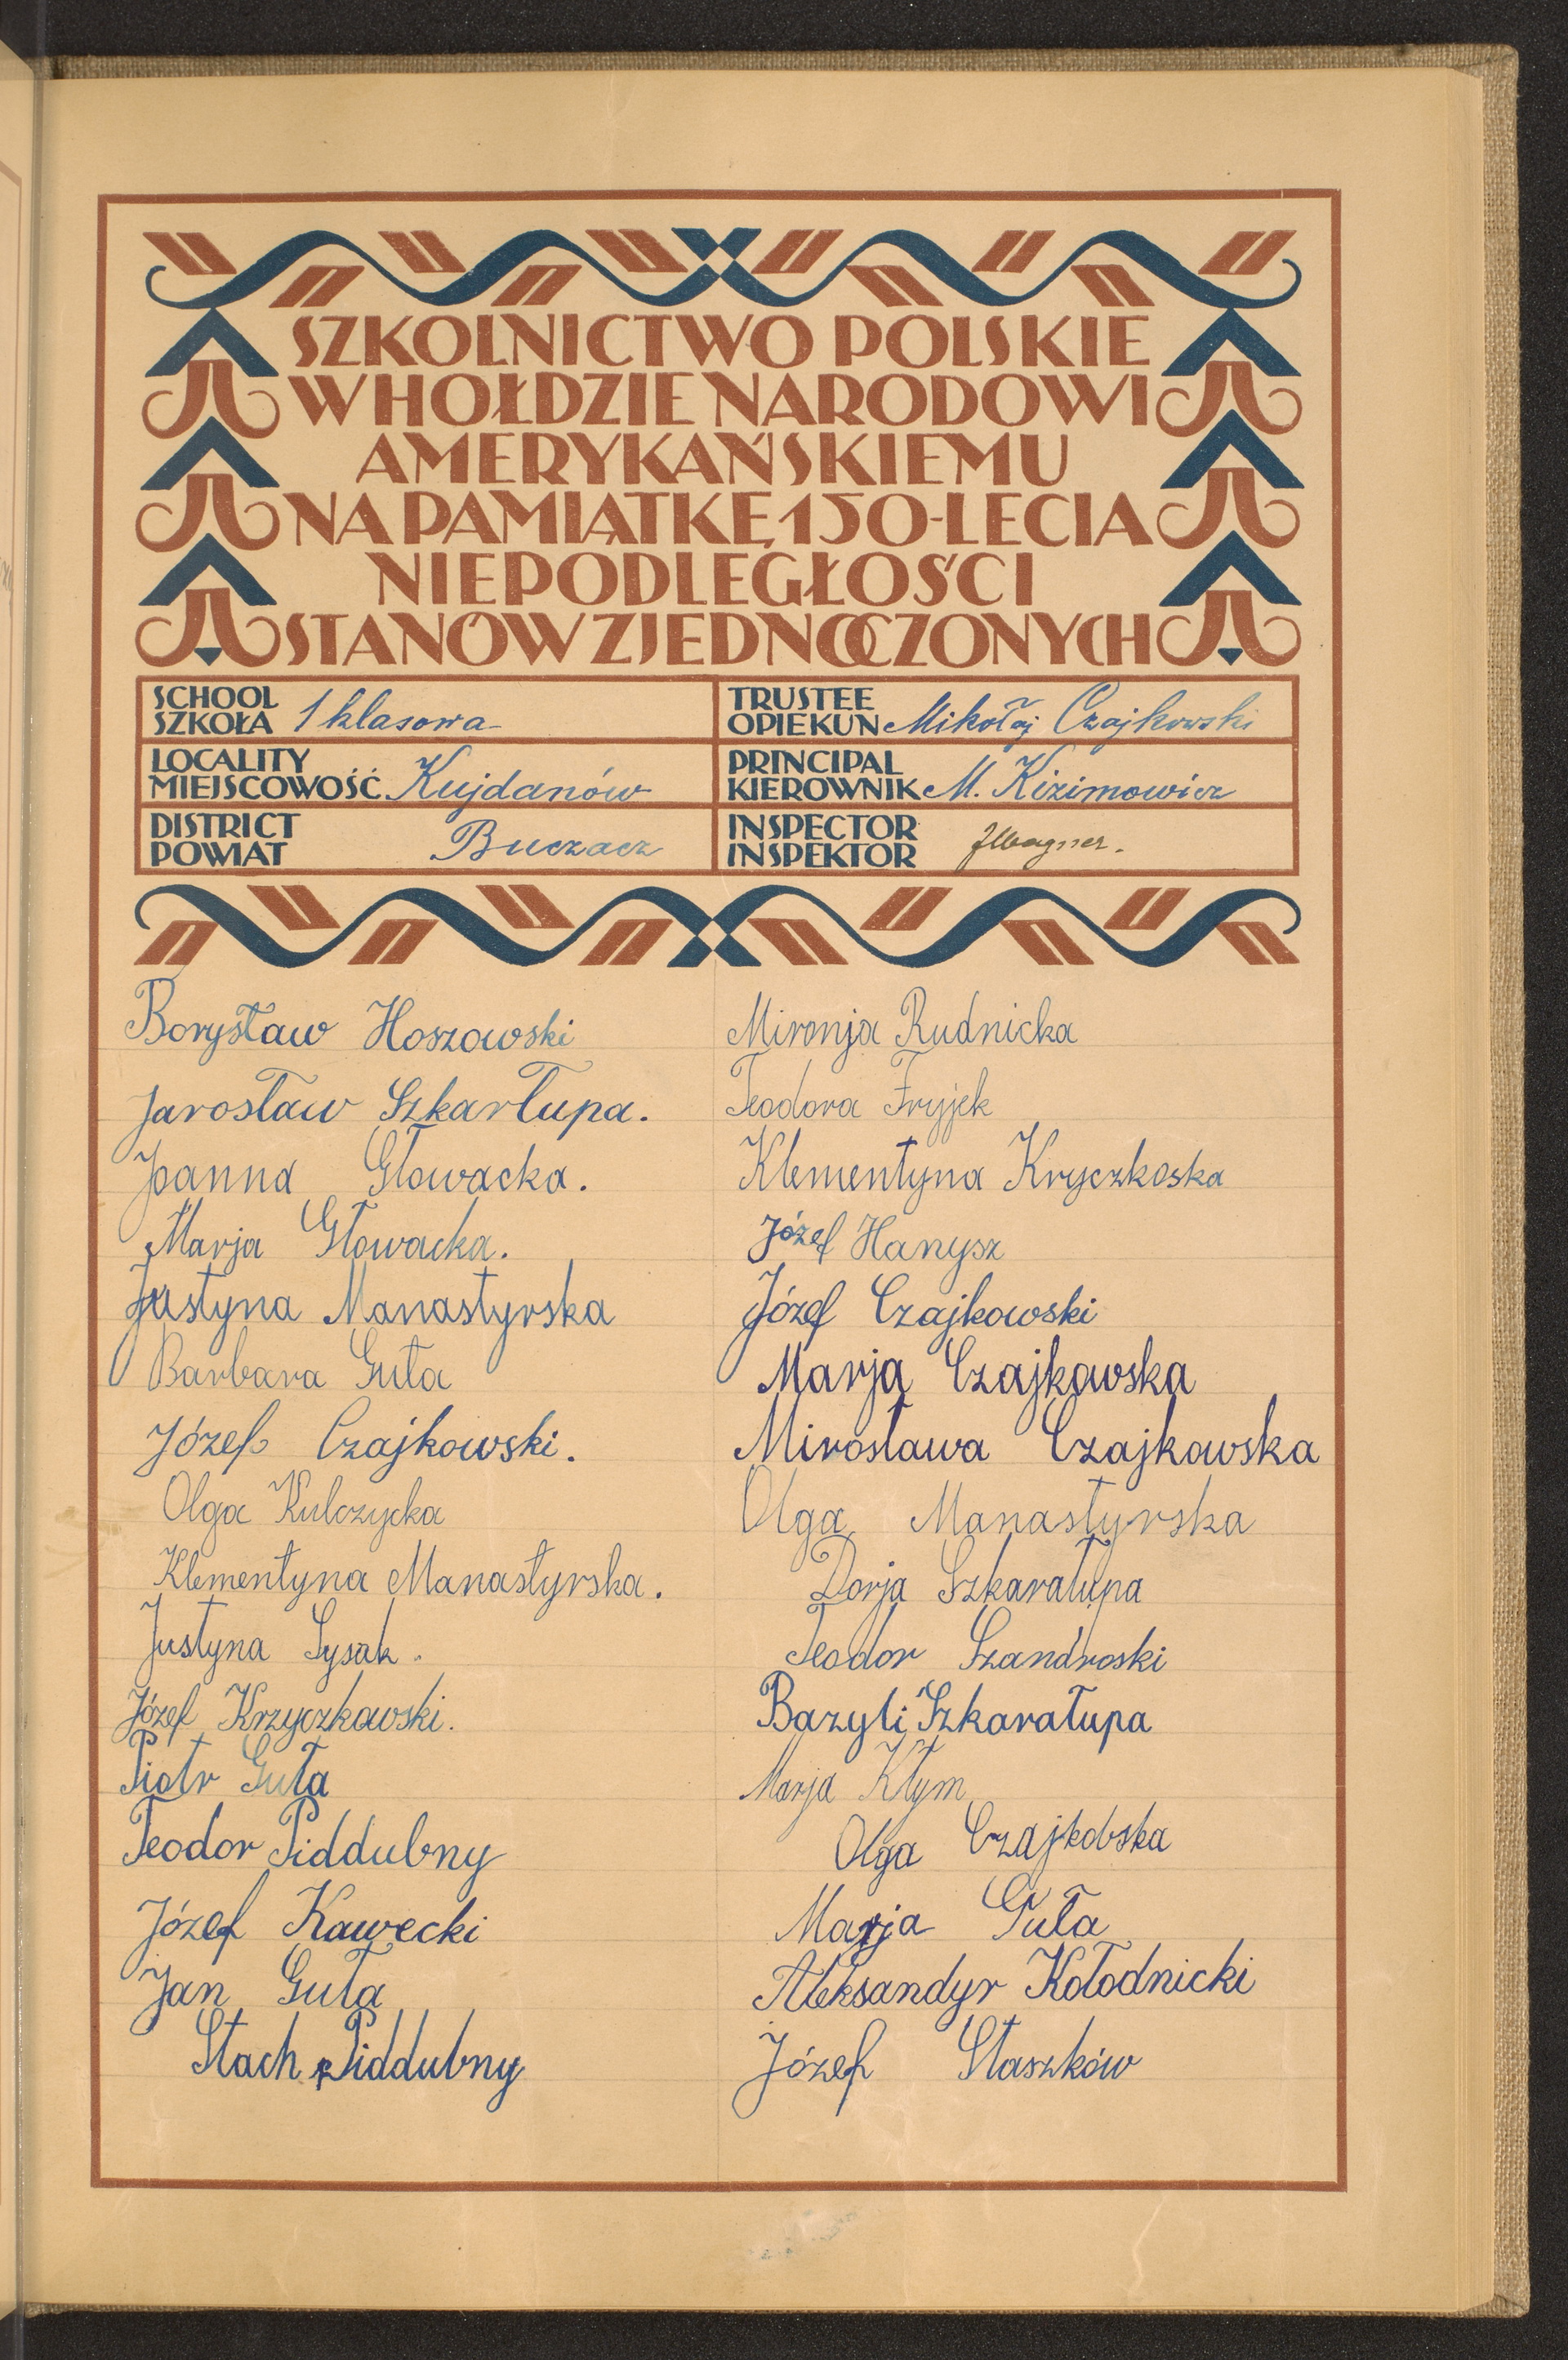 SZKOLNICTWO POLSKIE
W HOŁDZIE NARODOWI
AMERYKAŃSKIEMU
NA PAMIĄTKĘ 150-LECIA
NIEPODLEGŁOŚCI
STANÓW ZJEDNOCZONYCH
SCHOOL
SZKOŁA 1 klasowa
TRUSTEE
OPIEKUN Mikołaj Czajkowski
LOCALITY
MIEJSCOWOŚĆ Kujdanów
PRINCIPAL
KIEROWNIK M. Kizimowicz
DISTRICT
POWIAT Buczacz
INSPECTOR
INSPEKTOR JWagner.
Borysław Hoszowski
Jarosław Szkarłupa.
Joanna Głowacka.
Marja Głowacka.
Justyna Manastyrska
Barbara Guła
Józef Czajkowski.
Olga Kulczycka
Klementyna Manastyrska.
Justyna Sysak.
Józef Krzyczkowski.
Piotr Guła
Teodor Piddubny
Józef Kawecki
Jan Guła
Stach Piddubny
Mironja Rudnicka
Teodora Fryjek
Klementyna Kryczkoska
Józef Hanysz
Józef Czajkowski
Marja Czajkowska
Mirosława Czajkowska
Olga Manastyrska
Dorja Szkarałupa
Teodor Szandroski
Bazyli Szkarałupa
Marja Kłym
Olga Czajkobska
Marja Guła
Aleksandyr Kołodnicki
Józef Staszków